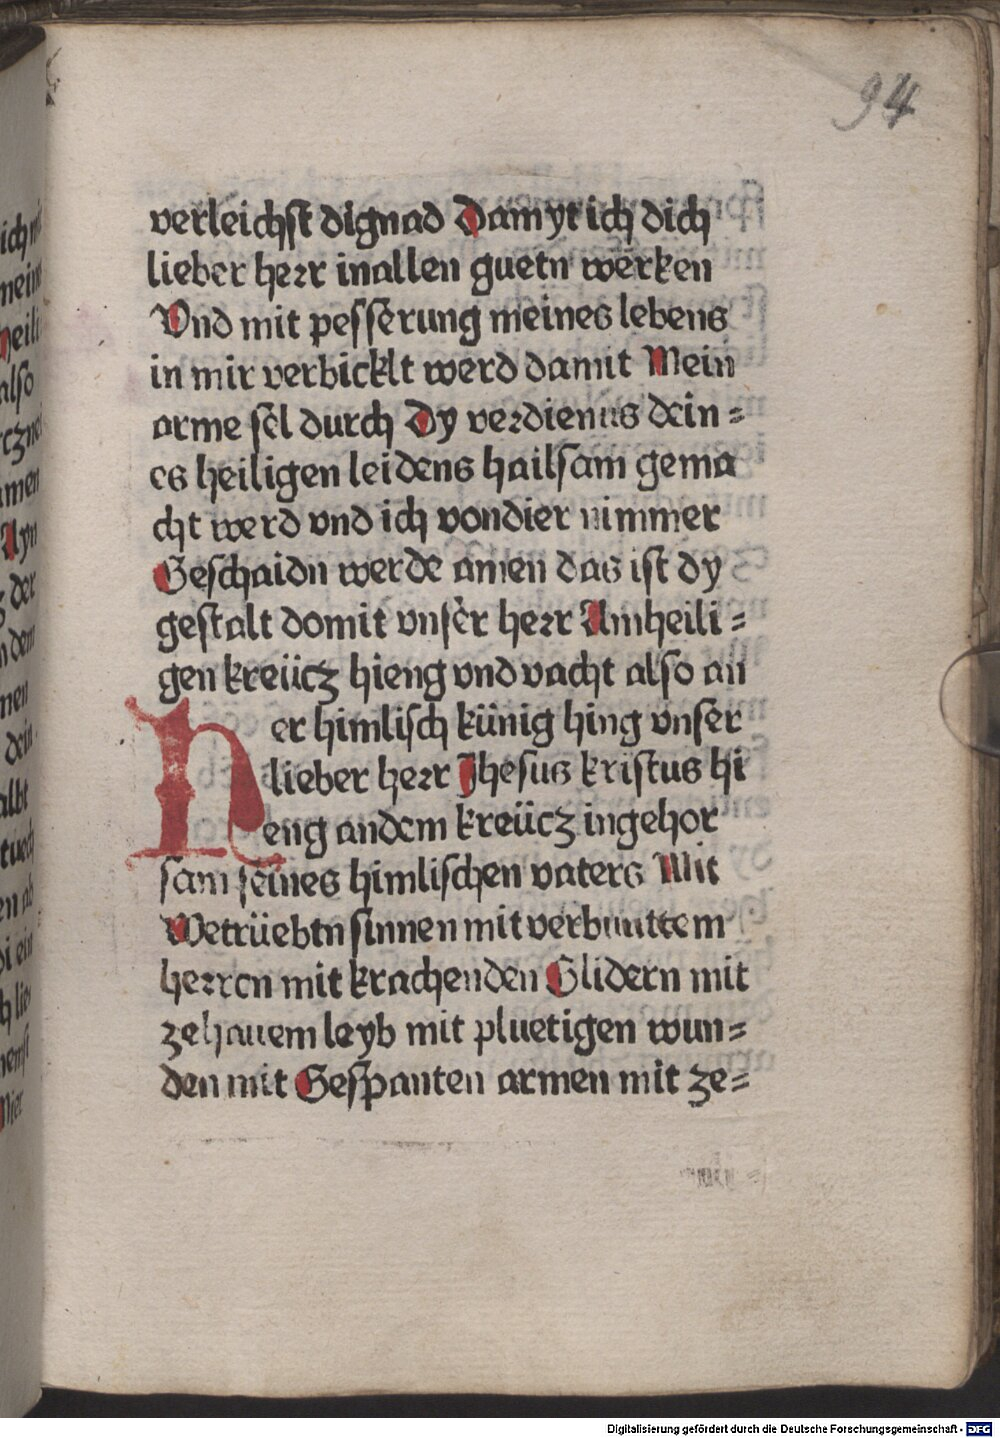 94
verleichst dignad Damyt ich dich
lieber herr inallen guetn werken
Vnd mit pesserung meines lebens
in mir verbicklt werd damit Mein
arme sel durch Dy verdienus dein=
es heiligen leidens hailsam gema
cht werd vnd ich vondier nimmer
Geschaidn werde amen das ist dy
gestalt domit vnser herr Amheili=
gen kreücz hieng vnd vacht also an
er himlisch künig hing vnser
lieber herr Jhesus kristus hi
eng andem kreücz ingehor
sam seines himlischen vaters Mit
Wetrüebtn sinnen mit verbunttem
herren mit krachenden Glidern mit
zehauem leyb mit pluetigen wun=
den mit Gespanten armen mit ze=
Digitalisierung gefördert durch die Deutsche Forschungsgemeinschaft - DFG